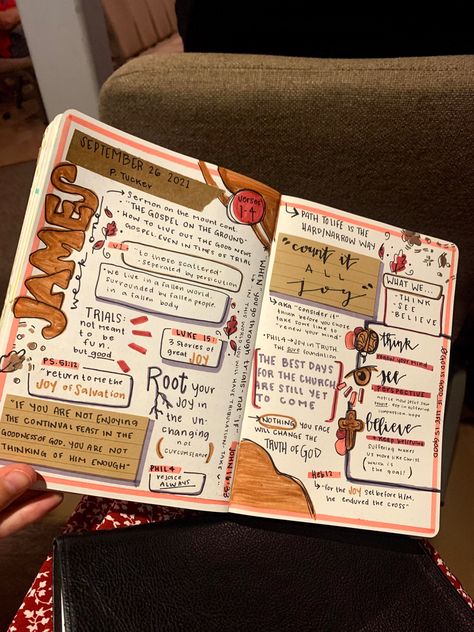 SEPTEMBER 26 2021
P. TUCKER
JAMES
week one
Sermon on the Mount cont.
"THE GOSPEL ON THE GROUND"
HOW TO LIVE OUT THE GOOD NEWS
GOSPEL-EVEN IN TIMES OF TRIAL
verses
1-4
V.1
"to those scattered"
- seperated by persecution
we live in a fallen world,
surrounded by fallen people,
in a fallen body
TRIALS:
not meant
to be
fun,
but good
LUKE 15:
3 stories of
great JOY
PS. 51:12
"return to me the
JOY of Salvation"
Root your
JOY in
the un-
changing
(not
circumstance)
"IF YOU ARE NOT ENJOYING
THE CONTINUAL FEAST IN THE
GOODNESS OF GOD, YOU ARE NOT
THINKING OF HIM ENOUGH"
PHIL 4
rejoice
ALWAYS
WHEN you go through trials - not "if"
JOHN 16:33
PATH TO LIFE IS THE
HARD/NARROW WAY
"count it
ALL
joy"
WHAT WE...
- THINK
- SEE
- BELIEVE
AKA "consider it"
think before you choose
take some time to
"renew your mind"
PHIL 4 → JOY IN TRUTH
the best foundation
THE BEST DAYS
FOR THE CHURCH
ARE STILL YET
TO COME
NOTHING YOU FACE
WILL CHANGE THE
TRUTH OF GOD
Heb 12
"for the JOY set before HIM,
he endured the cross"
think
your mind
see
PERSPECTIVE
believe
keep believing
suffering makes
us more like Christ
(which is
the goal!)